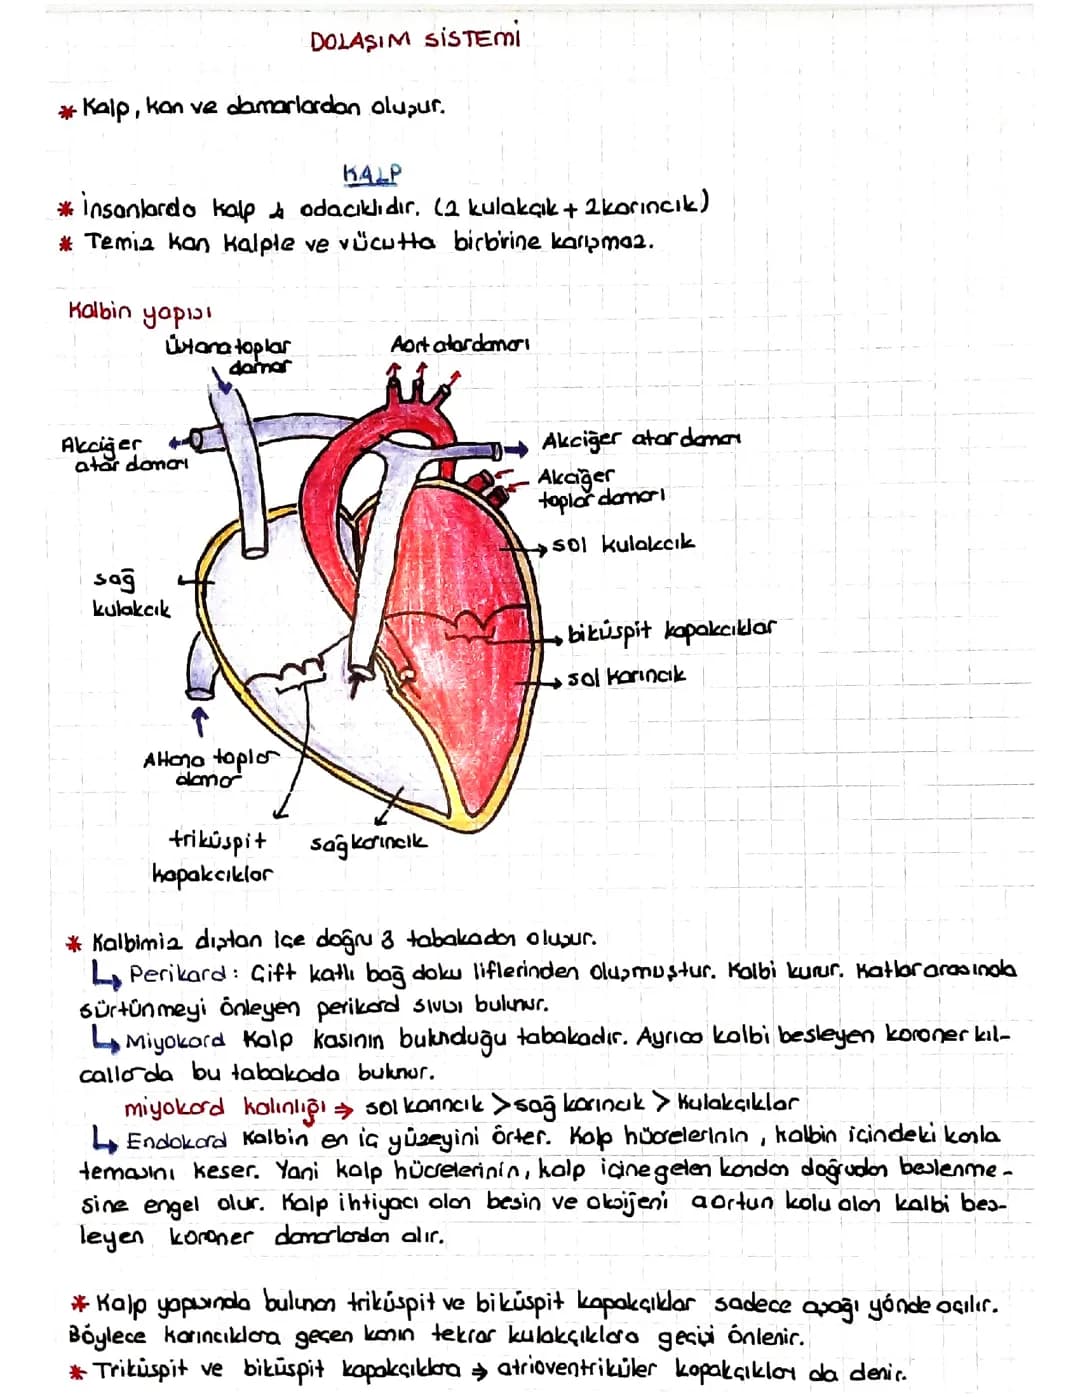 DOLAŞIM SİSTEMİ
* Kalp, kan ve damarlardan oluşur.
KALP
* İnsanlarda kalp 4 odacıklıdır. (2 kulakçık + 2 karıncık)
* Temiz kan kalple ve vücutta birbirine karışmaz.
Kalbin yapısı
Üst ana toplar
damar
Aort atardamarı
Akciğer
atar damarı
Akciğer atar damarı
Akciğer
toplar damarı
sol kulakcık
sağ
kulakcık
biküspit kapakcıklar
sol karıncık
Alt ana toplar
damar
triküspit
kapakcıklar
sağ karıncık
* Kalbimiz dıştan içe doğru 3 tabakadan oluşur.
↳ Perikard : Çift katlı bağ doku liflerinden oluşmuştur. Kalbi korur. Katlar arasında
sürtünmeyi önleyen perikard sıvısı bulunur.
↳ Miyokard Kalp kasının bulunduğu tabakadır. Ayrıca kalbi besleyen koroner kıl-
callarda bu tabakada bulunur.
miyokard kalınlığı → sol karıncık > sağ karıncık > kulakçıklar
↳ Endokard Kalbin en iç yüzeyini örter. Kalp hücrelerinin , kalbin içindeki kanla
temasını keser. Yani kalp hücrelerinin, kalp içine gelen kandan doğrudan beslenme-
sine engel olur. Kalp ihtiyacı olan besin ve oksijeni aortun kolu olan kalbi bes-
leyen koroner damarlardan alır.
* Kalp yapısında bulunan triküspit ve biküspit kapakçıklar sadece aşağı yönde açılır.
Böylece karıncıklara geçen kanın tekrar kulakçıklara geçişi önlenir.
* Triküspit ve biküspit kapakçıklara → atrioventriküler kapakçıkları da denir.